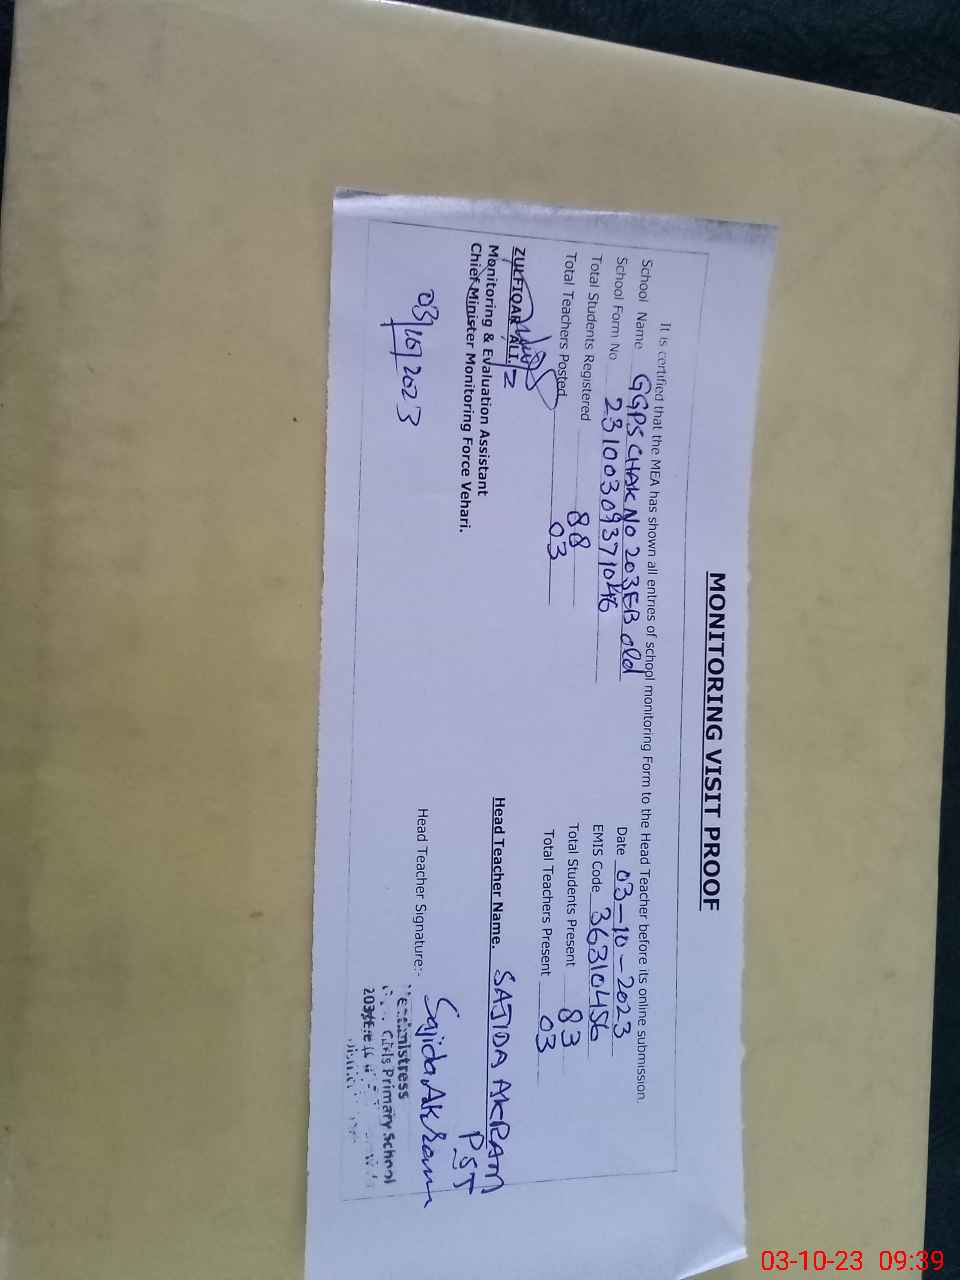 MONITORING VISIT PROOF
It is certified that the MEA has shown all entries of school monitoring Form to the Head Teacher before its online submission.
School Name GGPS CHAK NO 203EB old Date 03-10-2023
School Form No 23100309371046 EMIS Code 36310456
Total Students Registered 88 Total Students Present 83
Total Teachers Posted 03 Total Teachers Present 03
ZULFIQAR ALI Head Teacher Name. SAJIDA AKRAM
PST
Monitoring & Evaluation Assistant
Chief Minister Monitoring Force Vehari.
Head Teacher Signature:- Sajida Akram
03/10/2023
Headmistress
Girls Primary School
203/E.B
03-10-23 09:39